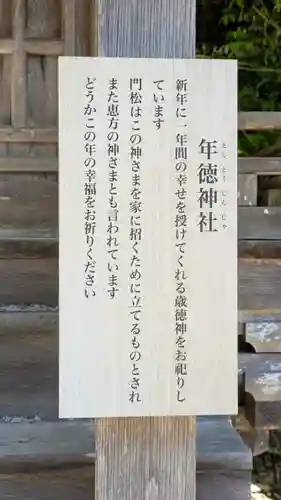 年徳神社
としとくじんじゃ
新年に一年間の幸せを授けてくれる歳徳神をお祀りし
ています
門松はこの神さまを家に招くために立てるものとされ
また恵方の神さまとも言われています
どうかこの年の幸福をお祈りください